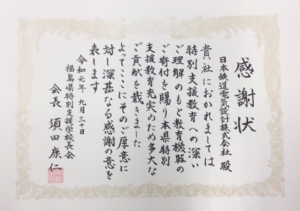 感謝状
日本鉄道電気設計株式会社 殿
貴社におかれましては
特別支援教育への深い
ご理解のもと教育機器の
ご寄付を賜り本県特別
支援教育充実のため多大な
ご貢献を戴きました
よってここにそのご厚意に
対し深甚なる感謝の意を
表します
令和元年九月三十日
福島県特別支援学校長会
会長 須田康仁